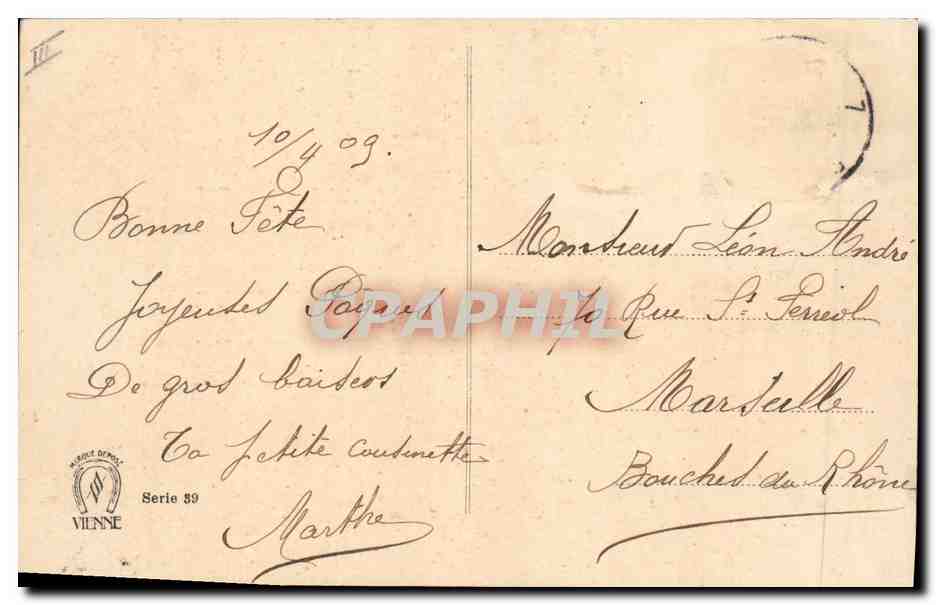 III
10/4 09.
Bonne Fête
Joyeuses Pâques
De gros baisers
Ta petite cousinette
Marthe
MARQUE DEPOSÉ
VIENNE
Serie 39
Monsieur Léon André
70 Rue St Ferréol
Marseille
Bouches du Rhône
CPAPHIL